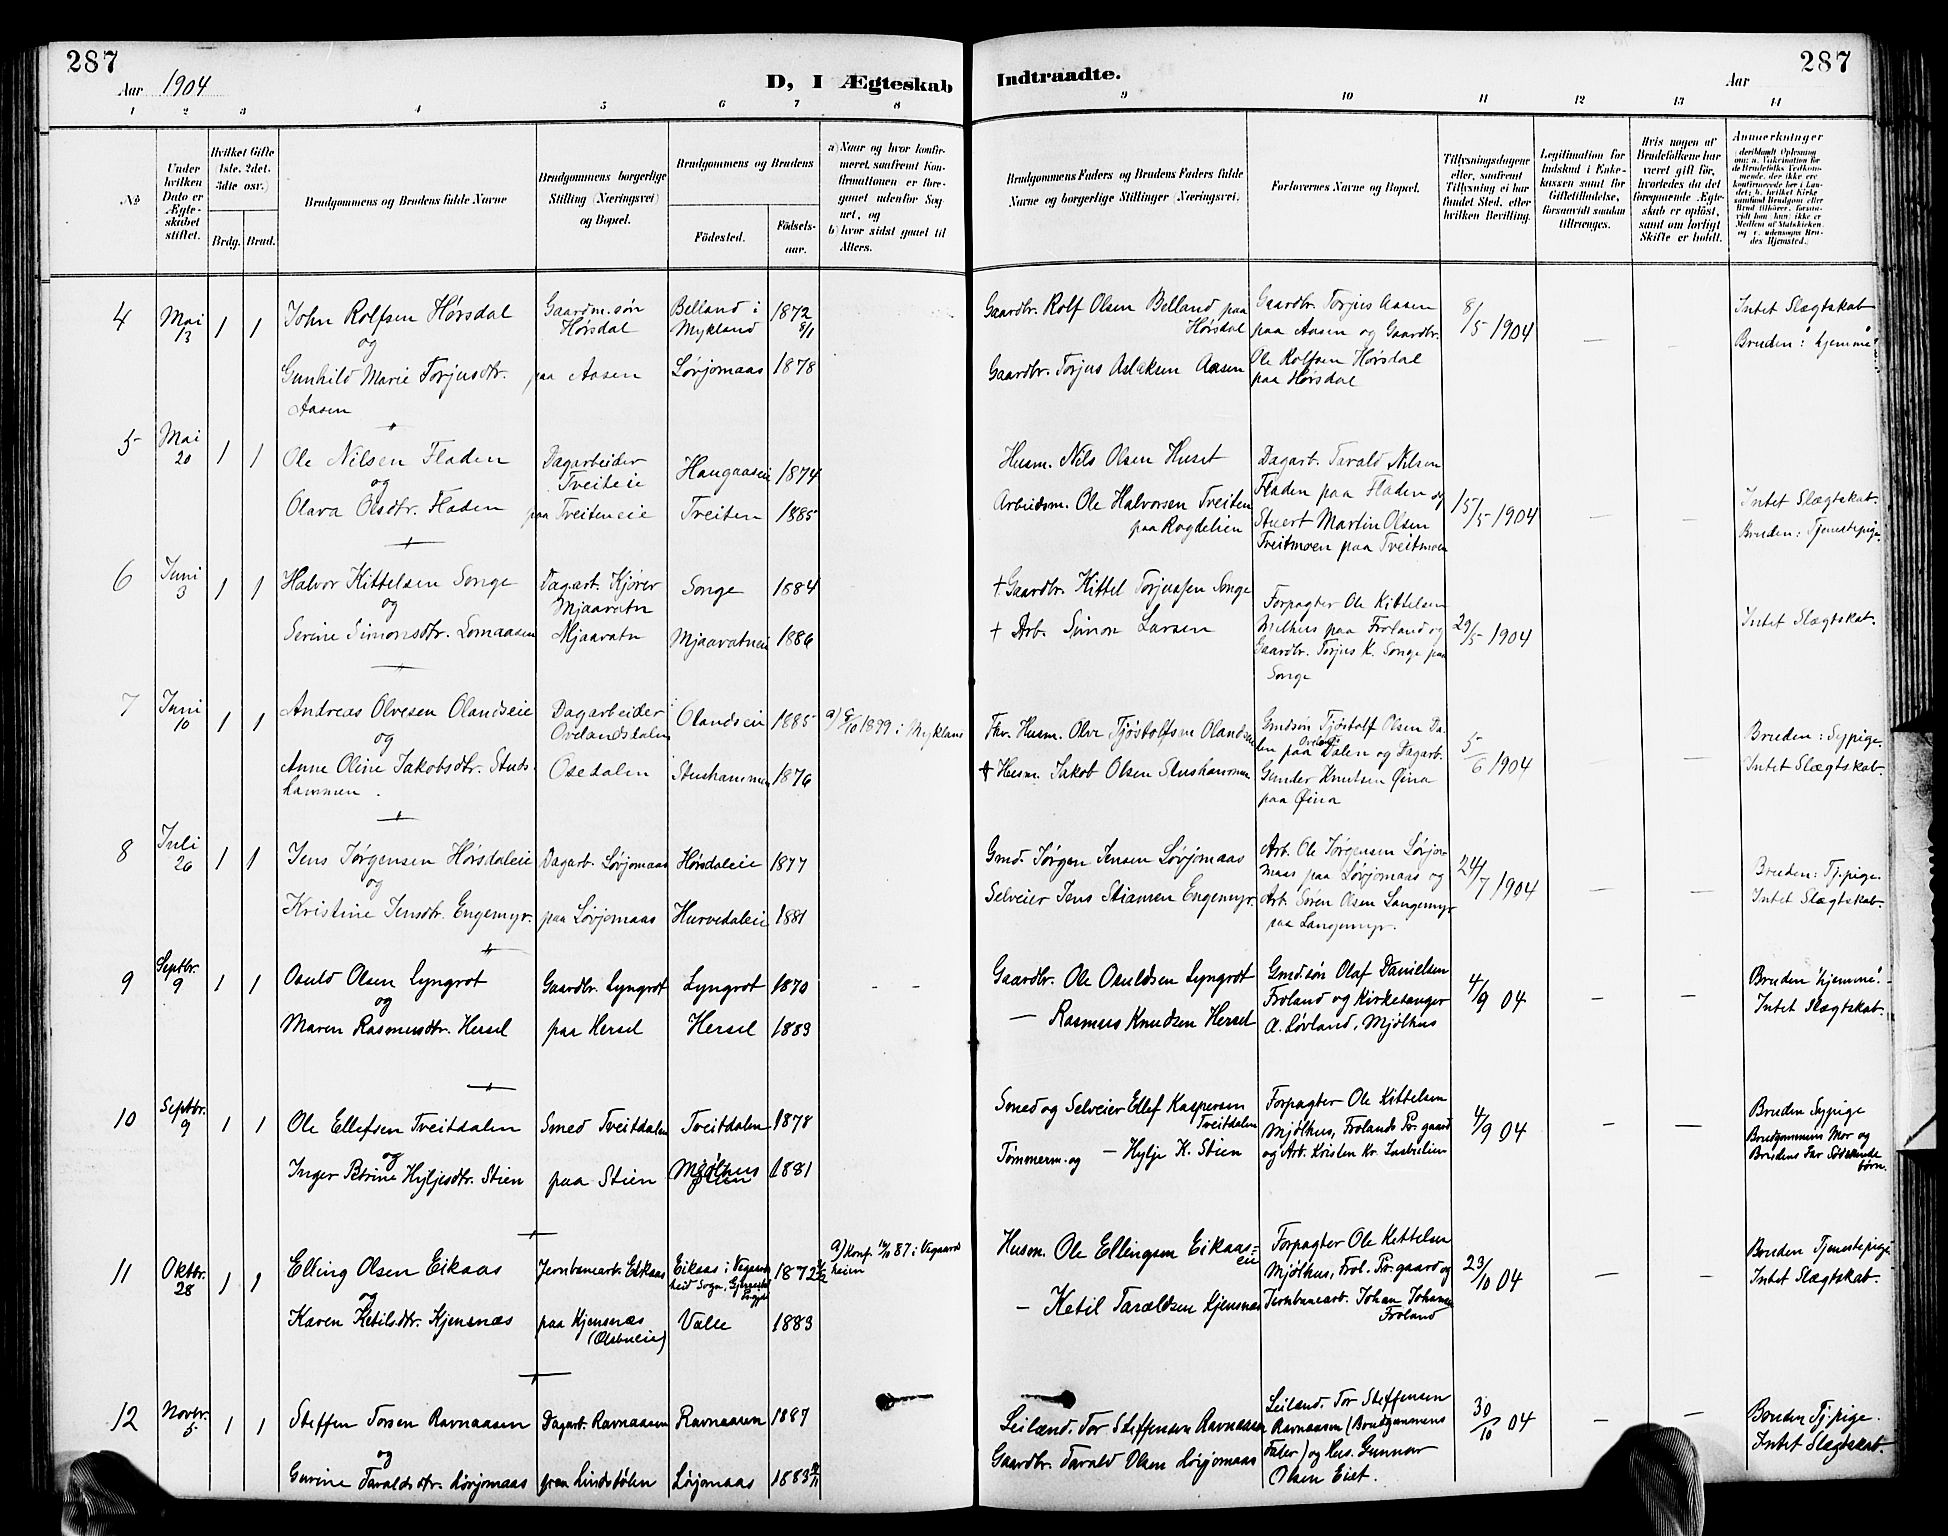 287
Aar 1904
D, I Ægteskab
Indtraadte.
Aar
287
1 2 3 4 5 6 7 8 9 10 11 12 13 14
No
Under hvilken Dato er Ægteskabet stiftet.
Hvilket Gifte (1ste, 2det, 3die osv.)
Brdg. Brud.
Brudgommens og Brudens fulde Navne
Brudgommens borgerlige Stilling (Næringsvei) og Bopæl.
Brudgommens og Brudens
Fødested.
Fødselsaar.
a) Naar og hvor konfirmeret, saafremt Konfirmationen er foregaaet udenfor Sognet, og
b) hvor sidst gaaet til Alters.
Brudgommens Faders og Brudens Faders fulde Navne og borgerlige Stillinger (Næringsvei).
Forlovernes Navne og Bopæl.
Tillysningsdagene eller, saafremt Tillysning ei har fundet Sted, efter hvilken Bevilling.
Legitimation for Indskud i Enkekassen samt for Giftetilladelse, forsaavidt saadan tiltrænges.
Hvis nogen af Brudefolkene har været gift før, hvorledes da det foregaaende Ægteskab er opløst, samt om lovligt Skifte er holdt.
Anmerkninger
4 Mai 13 1 1 John Rolfsen Hørsdal Gaardm.søn Hørsdal Belland i Mykland 1872 8/1
og
Gunhild Marie Torjusdtr. Aasen paa Aasen Løvjomaas 1878
Gaardbr. Rolf Olsen Belland paa Hørsdal
Gaardbr. Torjus Aslaksen Aasen
Gaardbr. Torjus Aasen
paa Aasen og Gaardbr.
Ole Rolfsen Hørsdal
paa Hørsdal
8/5 1904 — —
Intet Slægtskab
Bruden: "hjemme"
5 Mai 20 1 1 Ole Nilsen Fladen Dagarbeider Treiteie Haugaaseie 1874
og
Olava Olsdtr. Fladen paa Treiteneie Treiten 1885
Husm. Nils Olsen Huset
Arbeidsm. Ole Halvorsen Treiten
paa Rogdelien
Dagarb. Tarald Nilsen
Fladen paa Fladen og
Stuert Martin Olsen
Treitmoen paa Treitmoen
15/5 1904 — —
Intet Slægtskab.
Bruden: Tjenestepige.
6 Juni 3 1 1 Halvor Kittelsen Songe Dagarb. Kjører Mjaavatn Songe 1884
og
Serine Simonsdtr. Lomaasen Mjaavatn Mjaavatnei 1886
+ Gaardbr. Kittel Torjussen Songe
+ Arb. Simon Larsen
Forpagter Ole Kittelsen
Mulhus paa Froland og
Gaardbr. Torjus K. Songe paa
Songe
29/5 1904 — —
Intet Slægtskab.
7 Juni 10 1 1 Andreas Olvesen Olandseie Dagarbeider Ovelandsdalen Olandseie 1885 a) 8/10 1899 i Mykland
og
Anne Oline Jakobsdtr. Stushammen. Osedalen Stushammen 1876
Fhv. Husm. Olve Tjøstolfsen Olandseie
+ Husm. Jakob Olsen Stushammen
Gmdsøn Tjøstolf Olsen Da-
len paa Ovelands Dalen og Dagarb.
Gunder Knutsen Øina
paa Øina
5/6 1904 — —
Bruden: Sypige.
Intet Slægtskab.
8 Juli 26 1 1 Jens Jørgensen Hørsdaleie Dagarb. Løvjomaas Hørsdaleie 1877
og
Kristine Jensdtr. Engemyr. paa Løvjomaas Hurvedaleie 1881
Gmd. Jørgen Jensen Løvjomaas
Selveier Jens Stiansen Engemyr.
Arb. Ole Jørgensen Løvjo-
maas paa Løvjomaas og
Arb. Søren Olsen Langemyr
paa Langemyr.
24/7 1904 — —
Bruden: Tj.pige.
Intet Slægtskab.
9 Septbr. 9 1 1 Osuld Olsen Lyngrot Gaardbr. Lyngrot Lyngrot 1870 — —
og
Maren Rasmusdtr. Hersel paa Hersel Hersel 1883
Gaardbr. Ole Osuldsen Lyngrot
— Rasmus Knudsen Hersel
Gmd.søn Olaf Danielsen
Froland og Kirkesanger
A. Løvland, Mjølhus
4/9 04 — —
Bruden "hjemme".
Intet Slægtskab.
10 Septbr. 9 1 1 Ole Ellefsen Treitdalen Smed Treitdalen Treitdalen 1878
og
Inger Børine Hyljesdtr. Stien paa Stien Mjølhus Stien 1881
Smed og Selveier Ellef Kaspersen
Treitdalen
Tømmerm. og — Hylje K. Stien
Forpagter Ole Kittelsen
Mjølhus, Frolands Pr.gaard
og Arb. Kristen Kr. Lisbetlien
4/9 04 — —
Bruden Sypige
Brudgommens Mor og
Brudens Far Sødskende
børn.
11 Oktbr. 28 1 1 Elling Olsen Eikaas Jernbanearb. Eikaas Eikaas i Vegaardsheid Sogn, 1872 a) Konf. 16/10 87 i Vegaardsheien
og
Karen Ketilsdtr. Hjensnæs paa Hjensnæs (Osbueie) Valle 1883
Husm. Ole Ellingsen Eikaas-
eie
— Ketil Taraldsen Hjensnæs
Forpagter Ole Kettelsen
Mjølhus, Frol. Pr.gaard og
Jernbanearb. Johan Johansen
Froland
23/10 04 — —
Bruden Tjenestepige
Intet Slægtskab.
12 Novbr. 5 1 1 Steffen Torsen Ravnaasen Dagarb. Ravnaasen Ravnaasen 1887
og
Gurine Taraldsdtr. Løvjomaas paa Lindstølen Løvjomaas 1883
Leilænd. Tor Steffensen Ravnaasen
Gaardbr. Tarald Olsen Løvjomaas
Leilænd. Tor Steffensen
Ravnaasen (Brudgommens
Fader) og Hus. Gunnar
Olsen Eiet.
30/10 04 — —
Bruden Tj.pige.
Intet Slægtskab.